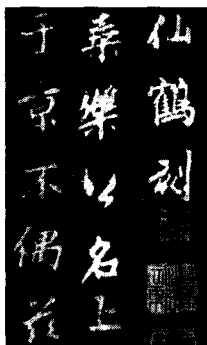 仙鶴刻
桑樂以名上
于京不偶前